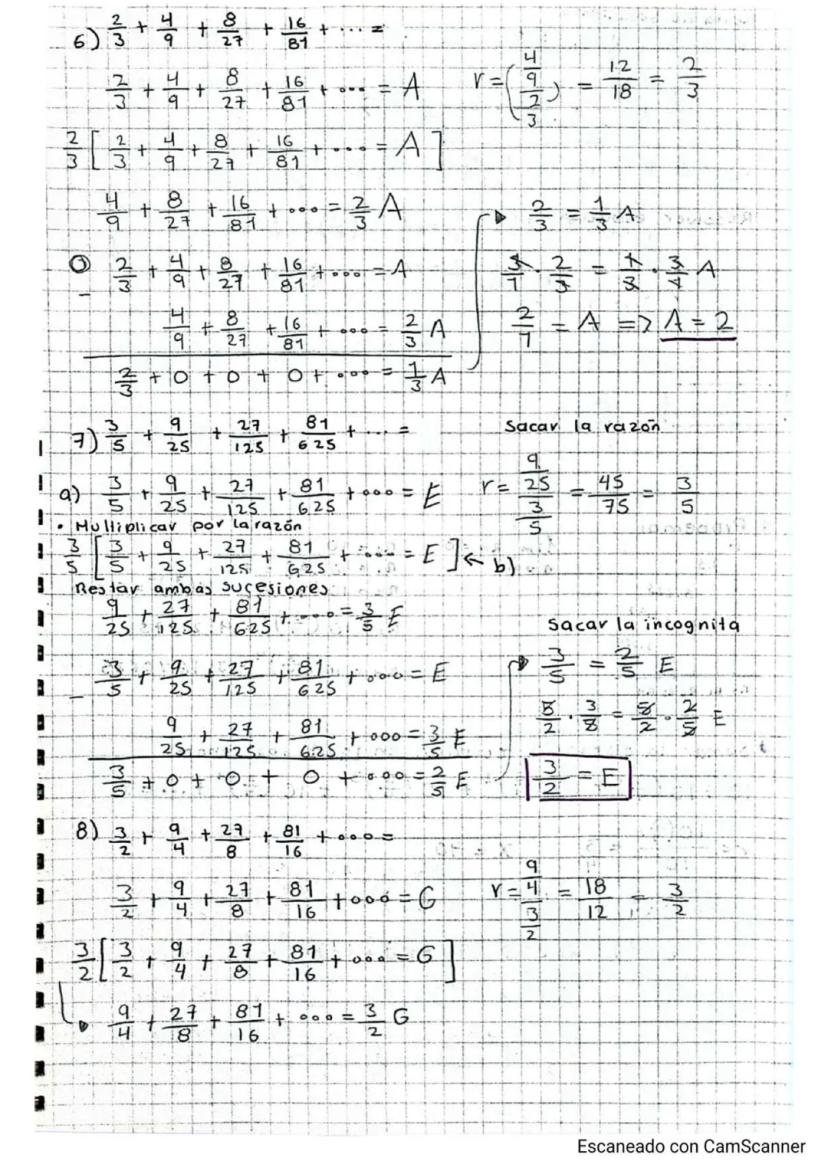 6) 2/3 + 4/9 + 8/27 + 16/81 + ... =
2/3 + 4/9 + 8/27 + 16/81 + ... = A
r = (4/9 / 2/3) = 12/18 = 2/3
2/3 [ 2/3 + 4/9 + 8/27 + 16/81 + ... = A ]
4/9 + 8/27 + 16/81 + ... = 2/3 A
2/3 + 4/9 + 8/27 + 16/81 + ... = A
- 4/9 + 8/27 + 16/81 + ... = 2/3 A
2/3 + 0 + 0 + 0 + ... = 1/3 A
2/3 = 1/3 A
3/1 · 2/3 = 1/3 · 3/1 A
2/1 = A => A = 2
7) 3/5 + 9/25 + 27/125 + 81/625 + ... =
Sacar la razón
a) 3/5 + 9/25 + 27/125 + 81/625 + ... = E
r = 9/25 / 3/5 = 45/75 = 3/5
• Multiplicar por la razón
3/5 [ 3/5 + 9/25 + 27/125 + 81/625 + ... = E ] ← b)
Restar ambas sucesiones
9/25 + 27/125 + 81/625 + ... = 3/5 E
3/5 + 9/25 + 27/125 + 81/625 + ... = E
- 9/25 + 27/125 + 81/625 + ... = 3/5 E
3/5 + 0 + 0 + 0 + ... = 2/5 E
Sacar la incognita
3/5 = 2/5 E
5/2 · 3/5 = 5/2 · 2/5 E
3/2 = E
8) 3/2 + 9/4 + 27/8 + 81/16 + ... =
3/2 + 9/4 + 27/8 + 81/16 + ... = G
r = 9/4 / 3/2 = 18/12 = 3/2
3/2 [ 3/2 + 9/4 + 27/8 + 81/16 + ... = G ]
9/4 + 27/8 + 81/16 + ... = 3/2 G
Escaneado con CamScanner